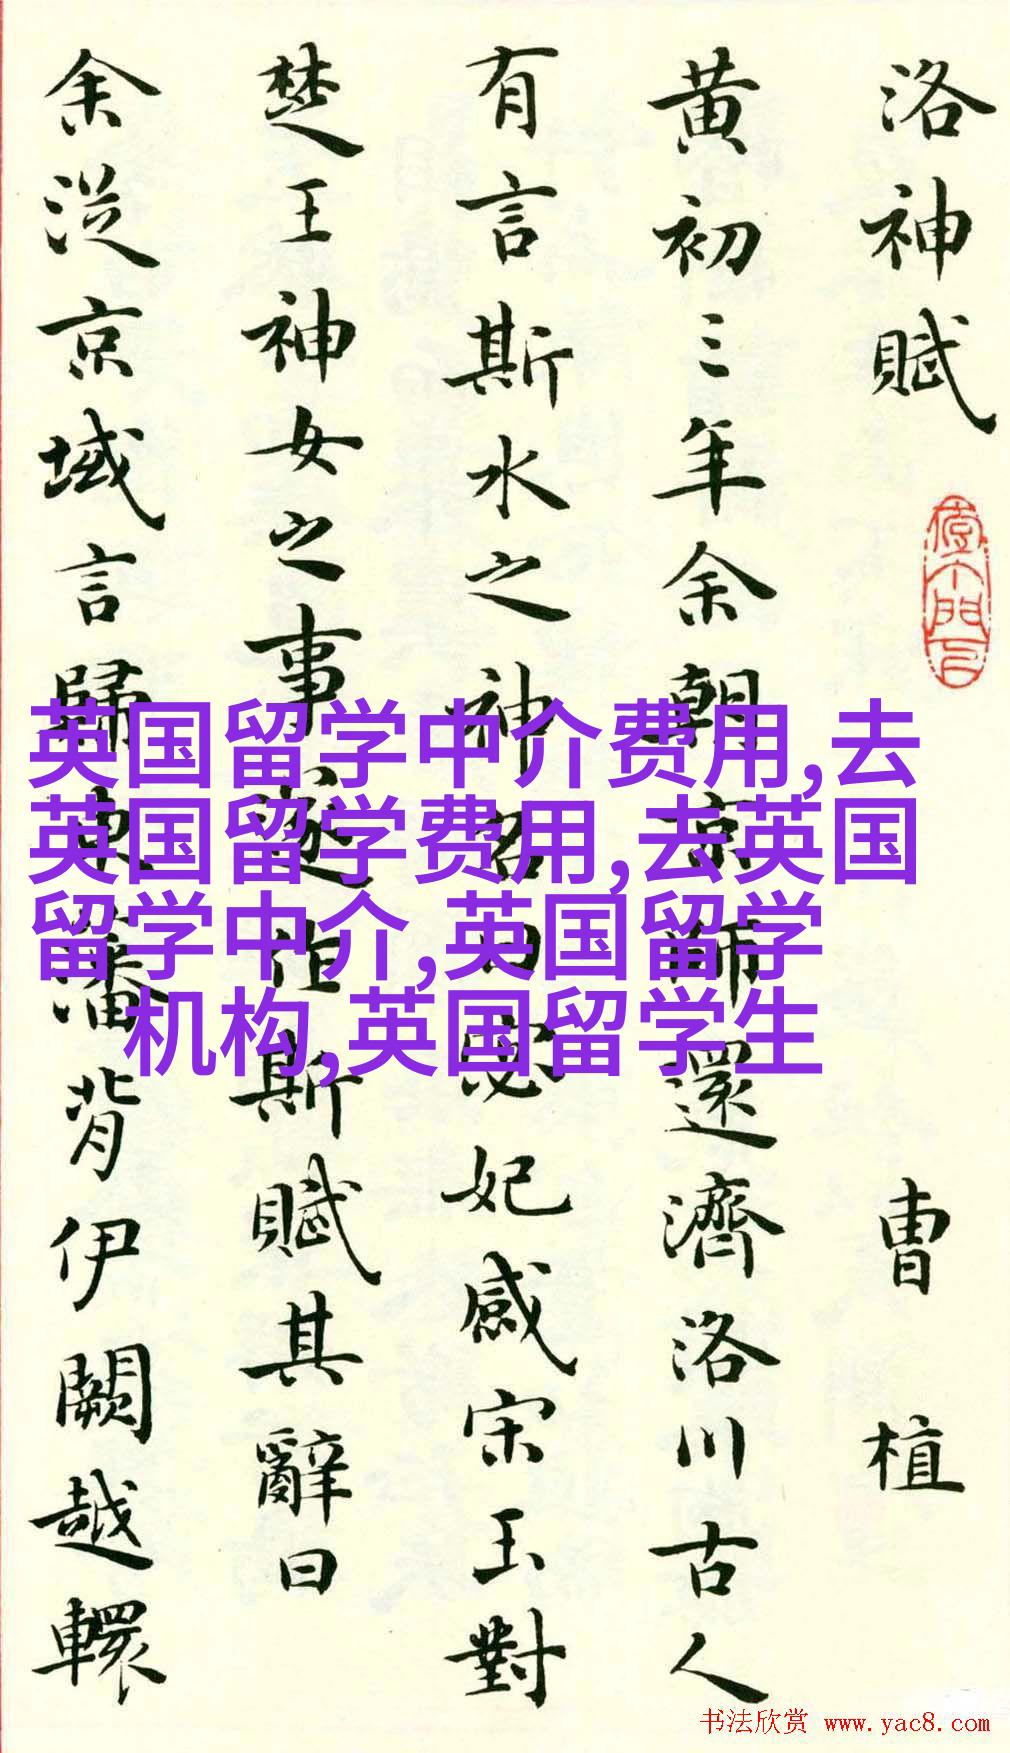 洛神賦
曹植
黄初三年余朝京師還濟洛川古人
有言斯水之神名曰宓妃感宋玉對
楚王神女之事遂作斯賦其辭曰
余從京域言歸東藩背伊闕越轘
英国留学中介费用,去
英国留学费用,去英国
留学中介,英国留学
机构,英国留学生
书法欣赏 www.yac8.com